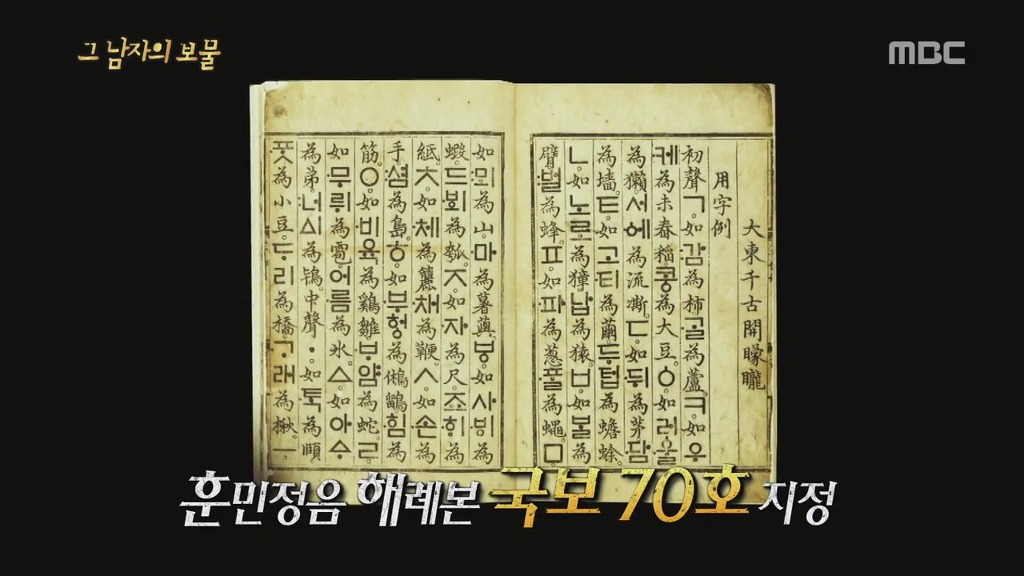 그 남자의 보물
MBC
大東千古開矇矓
用字例
初聲ㄱ。如감為柿。ᄀᆞᆯ為蘆。ㅋ。如우
케為未舂稻。콩為大豆。ㆁ。如러울
為獺。서에為流凘。ㄷ。如뒤為茅。담
為墻。ㅌ。如고티為繭。두텁為蟾蜍。
ㄴ。如노로為獐。납為猿。ㅂ。如ᄇᆞᆯ為
臂。벌為蜂。ㅍ。如파為葱。ᄑᆞᆯ為蠅。ㅁ。
如뫼為山。마為薯藇。ㅸ。如사ᄫᅵ為
蝦。드ᄫᅴ為瓠。ㅈ。如자為尺。죠ᄒᆡ為
紙。ㅊ。如체為籭。채為鞭。ㅅ。如손為
手。셤為島。ㅎ。如부헝為鵂鶹。힘為
筋。ㅇ。如비육為鷄雛。ᄇᆞ얌為蛇。ㄹ。
如무뤼為雹。어름為氷。ㅿ。如아ᅀᆞ
為弟。너ᅀᅵ為鴇。中聲ㆍ。如ᄐᆞᆨ為頤。
ᄑᆞᆺ為小豆。ᄃᆞ리為橋。ᄀᆞ래為楸。
훈민정음 해례본 국보 70호 지정